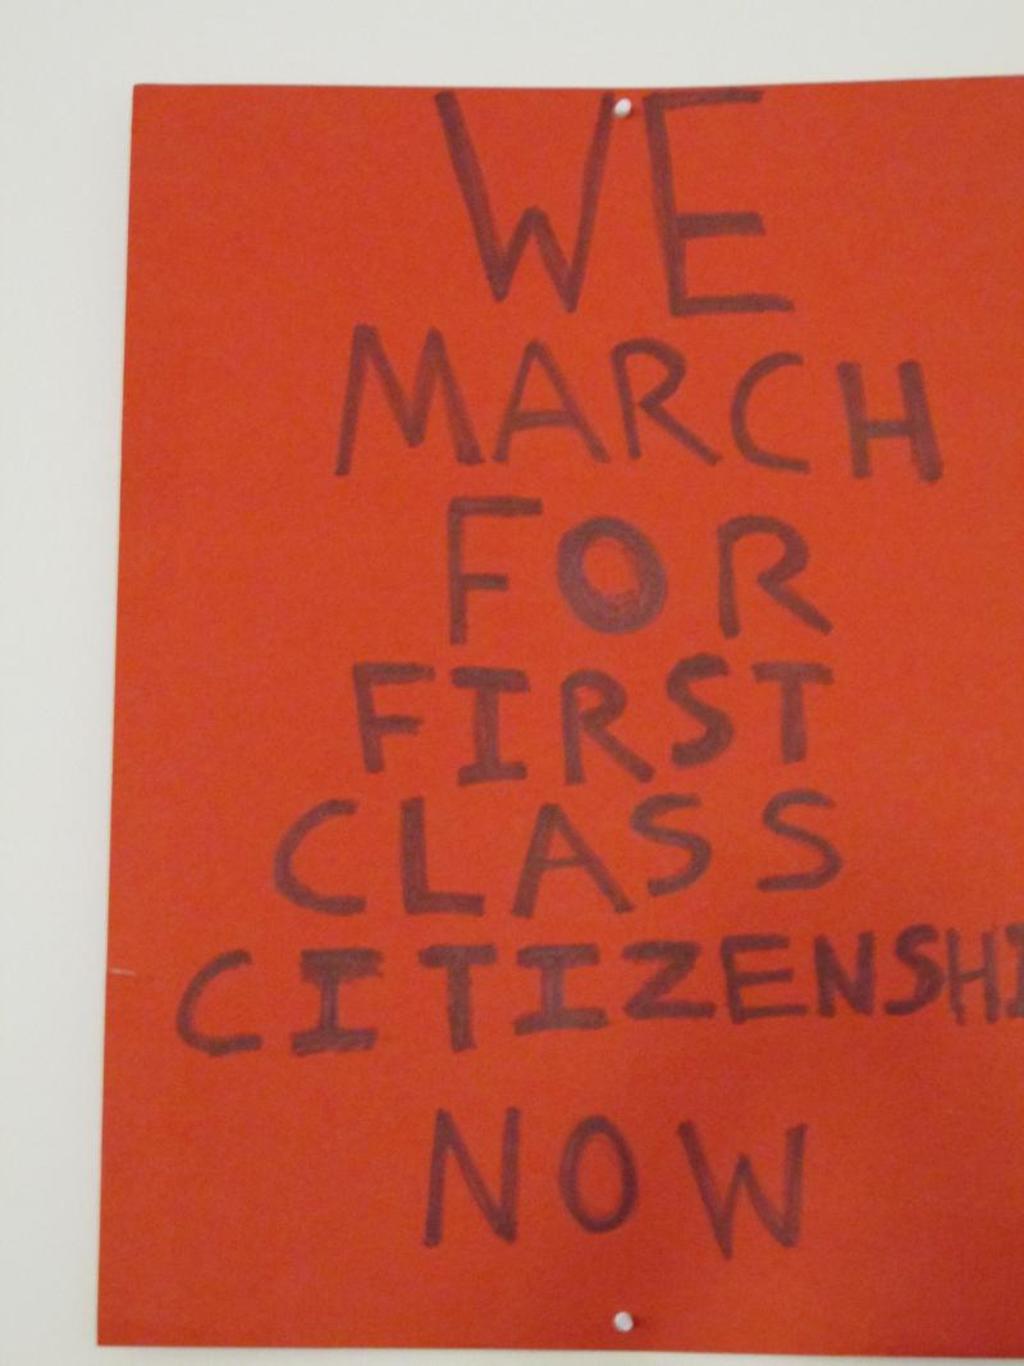 WE
MARCH
FOR
FIRST
CLASS
CITIZENSHI
NOW